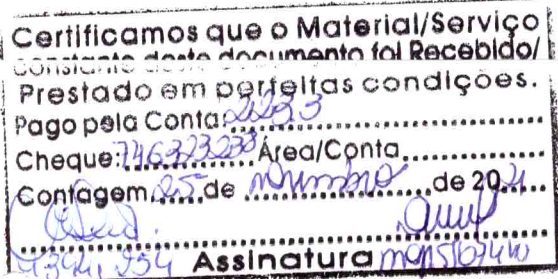 Certificamos que o Material/Serviço
constante deste documento foi Recebido/
Prestado em perfeitas condições.
Pago pela Conta: 2233
Cheque: Área/Conta
Contagem 25 de novembro de 20 21
Assinatura